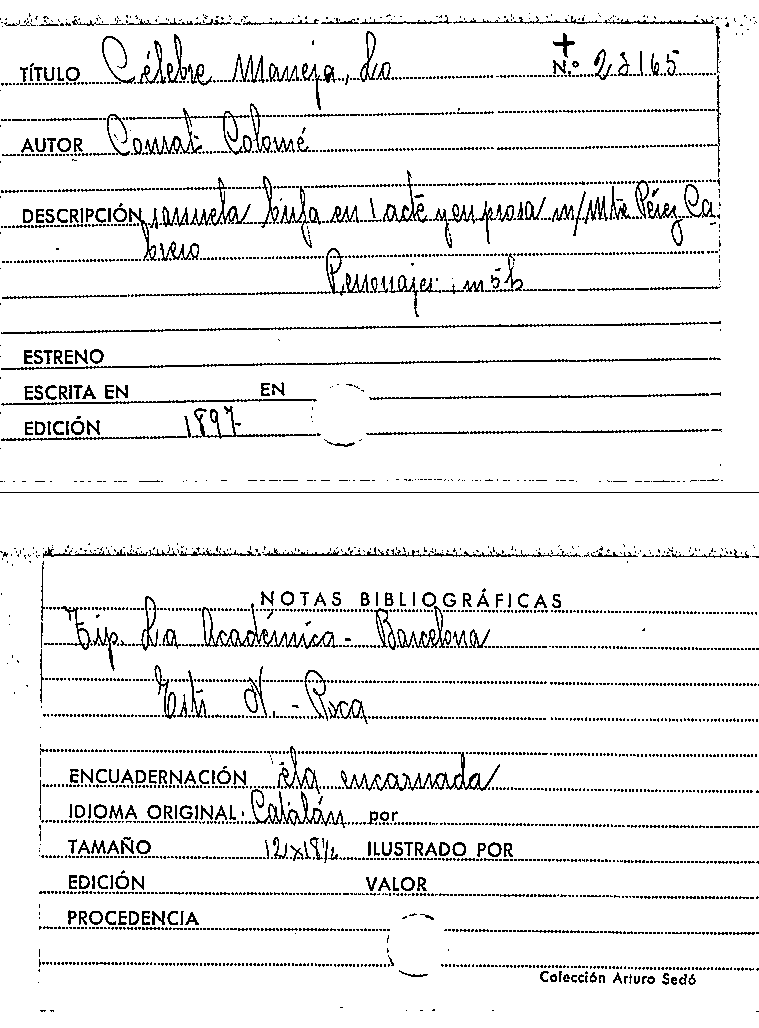 TÍTULO Célebre Maneja, La N.º 28165
AUTOR Comat Colomé
DESCRIPCIÓN zarzuela bufa en 1 acto y en prosa m/ Mtro Pérez Ca
brero
Personajes: 1m 5h
ESTRENO
ESCRITA EN EN
EDICIÓN 1897
NOTAS BIBLIOGRÁFICAS
Tip. La Académica - Barcelona
N. - Roca
ENCUADERNACIÓN tela encarnada
IDIOMA ORIGINAL Catalán por
TAMAÑO 12x18½ ILUSTRADO POR
EDICIÓN VALOR
PROCEDENCIA
Colección Arturo Sedó